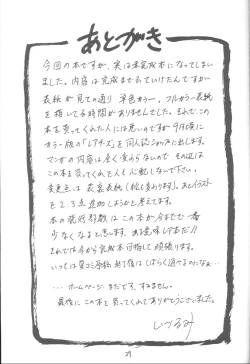 あとがき
今回の本ですが、実は未完成本になってしまい
ました。内容は完成までもっていけたんですが…
表紙が見ての通り 単色カラー。フルカラー表紙
を描いてる時間がありませんでした。それでこの
本を買ってくれた人には悪いのですが9月頃に
カラー版の「レアチーズ」を同人誌ショップに出します。
マンガの内容は全く変わらないので その辺は
この本を買ってくれた人も心配しないで下さい。
変更点は 表裏表紙(絵に変わります)。あとイラスト
を2、3点追加しようかと考えてます。
本の発行部数は この本が今までで一番
少なくなると思います。ある意味レア本だ!!
それでは今から完成本目指して頑張ります。
いっちは夏コミ原稿 終了後はしばらく遊べるのになぁ…
… ホームページ まだです。すみません。
最後に この本を買ってくれてありがとうございました。
いづるみ
29